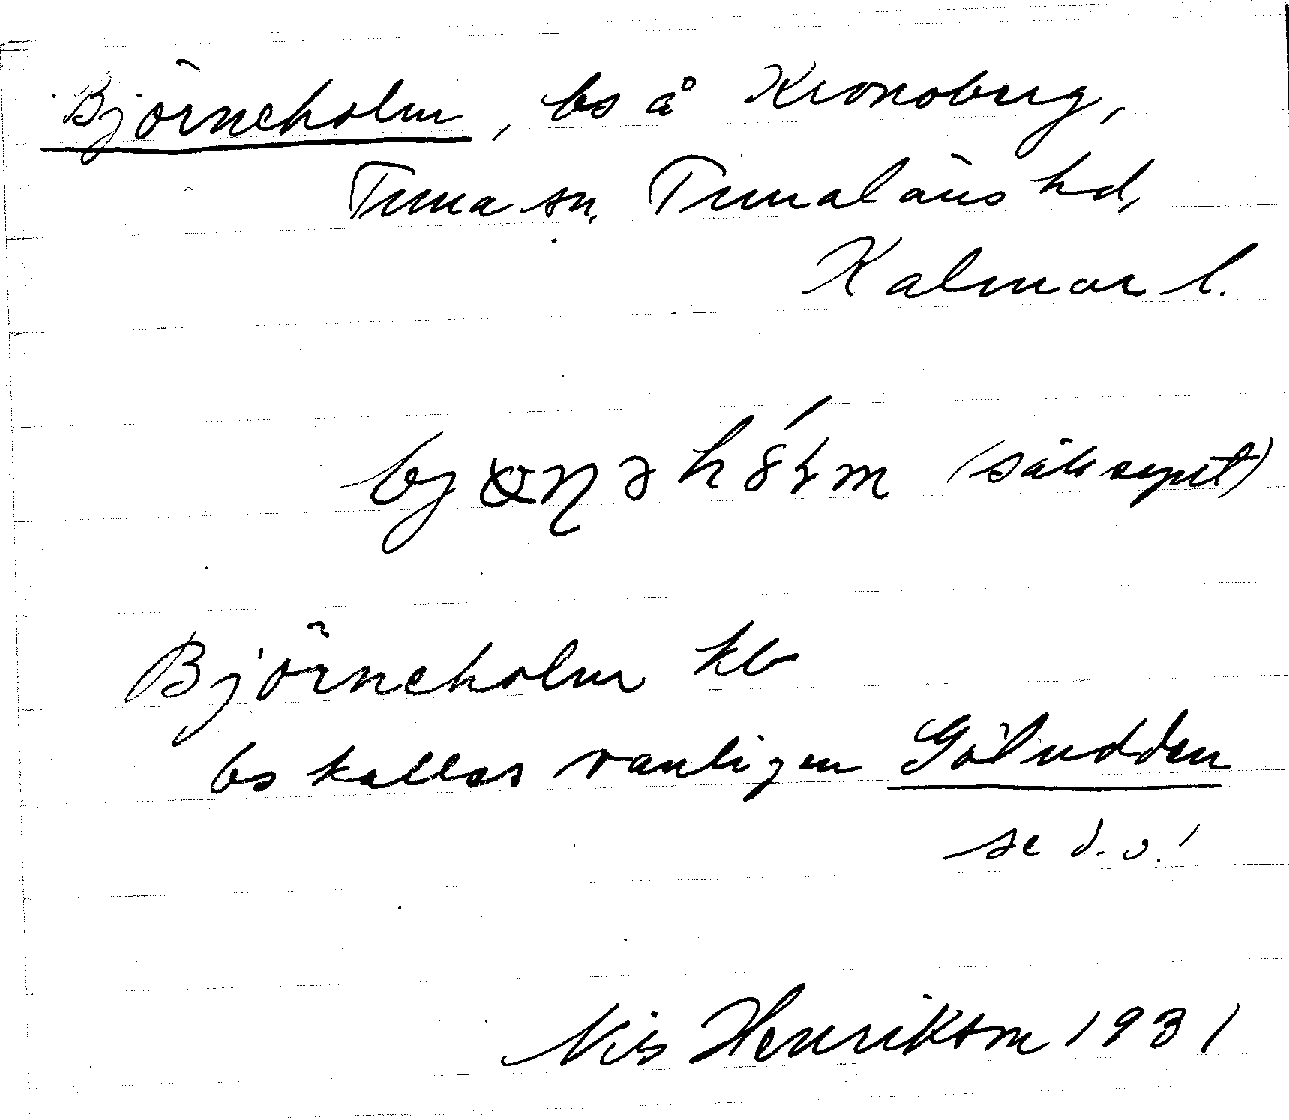 Björneholm, bs å Kronoberg,
Tuna sn. Tunaläns hd,
Kalmar l.
Björneholm kb
bs kallas vanligen Göludden
se d.o.!
Nils Henrikson 1931